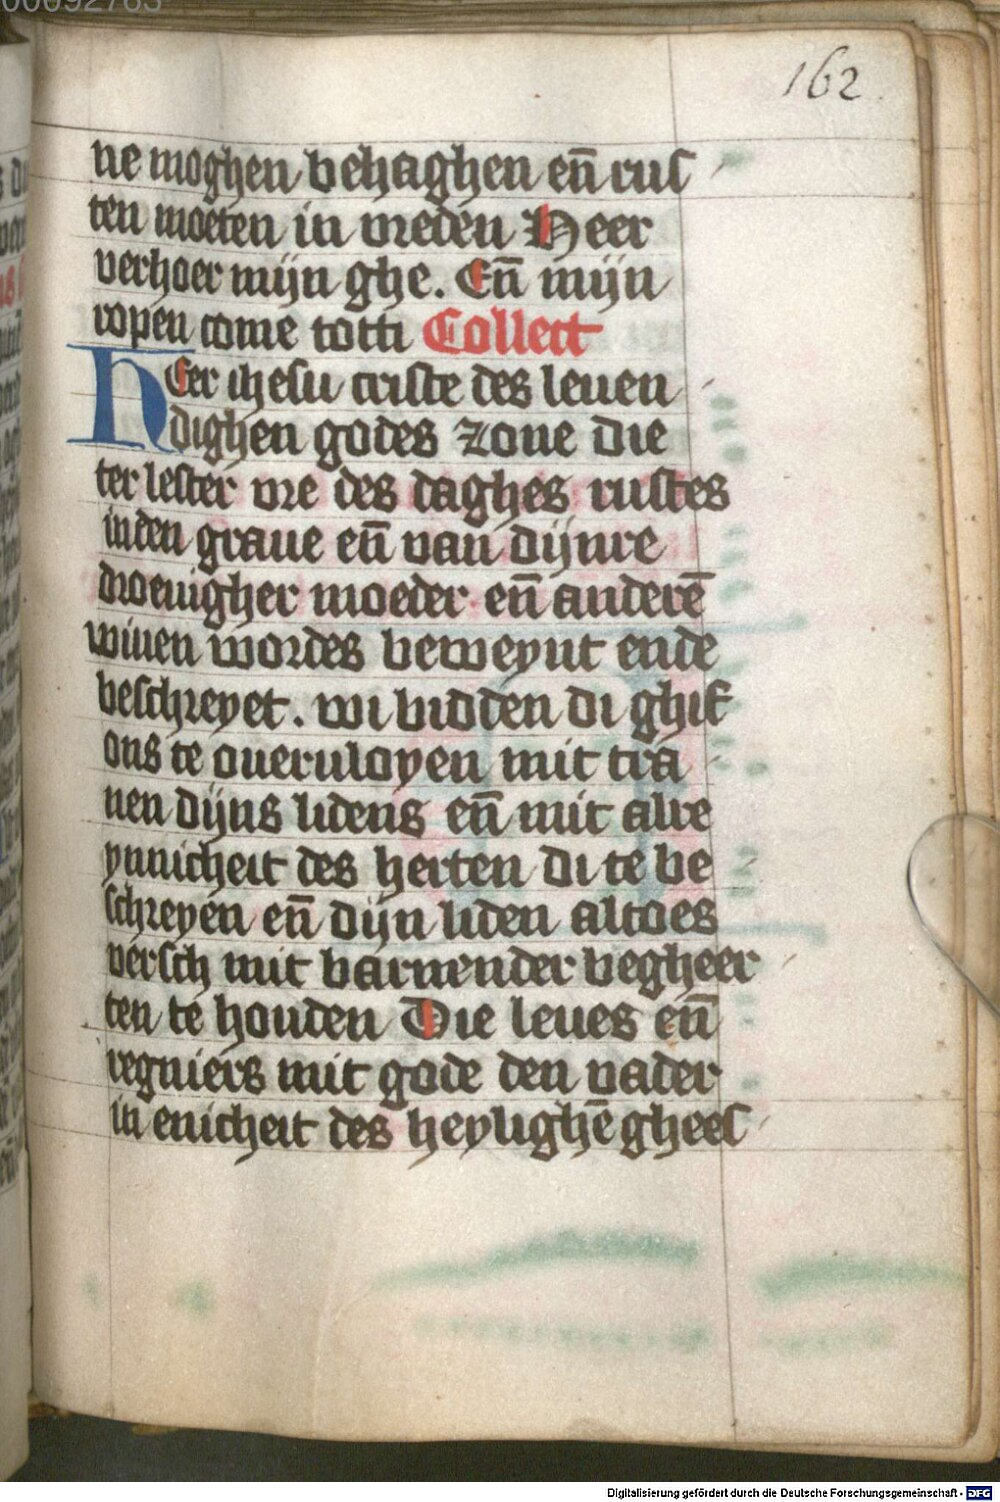 00092763
162
ne moghen behaghen eñ rus
ten moeten in vreden Heer
verhoer mijn ghe. Eñ mijn
ropen come totti Collect
HEer ihesu criste des leuen
dighen godes zone die
ter lester vre des daghes rustes
inden graue eñ van dijnre
droeuigher moeder eñ anderē
wiuen wordes beweynt ende
beschreyet. wi bidden di ghif
ons te oueruloyen mit tra
nen dijns lidens eñ mit alre
ynnicheit des herten di te be
schreyen eñ dijn liden altoes
versch mit barnender begheer
ten te houden Die leues eñ
regniers mit gode den vader
in enicheit des heylighē ghees
Digitalisierung gefördert durch die Deutsche Forschungsgemeinschaft - DFG